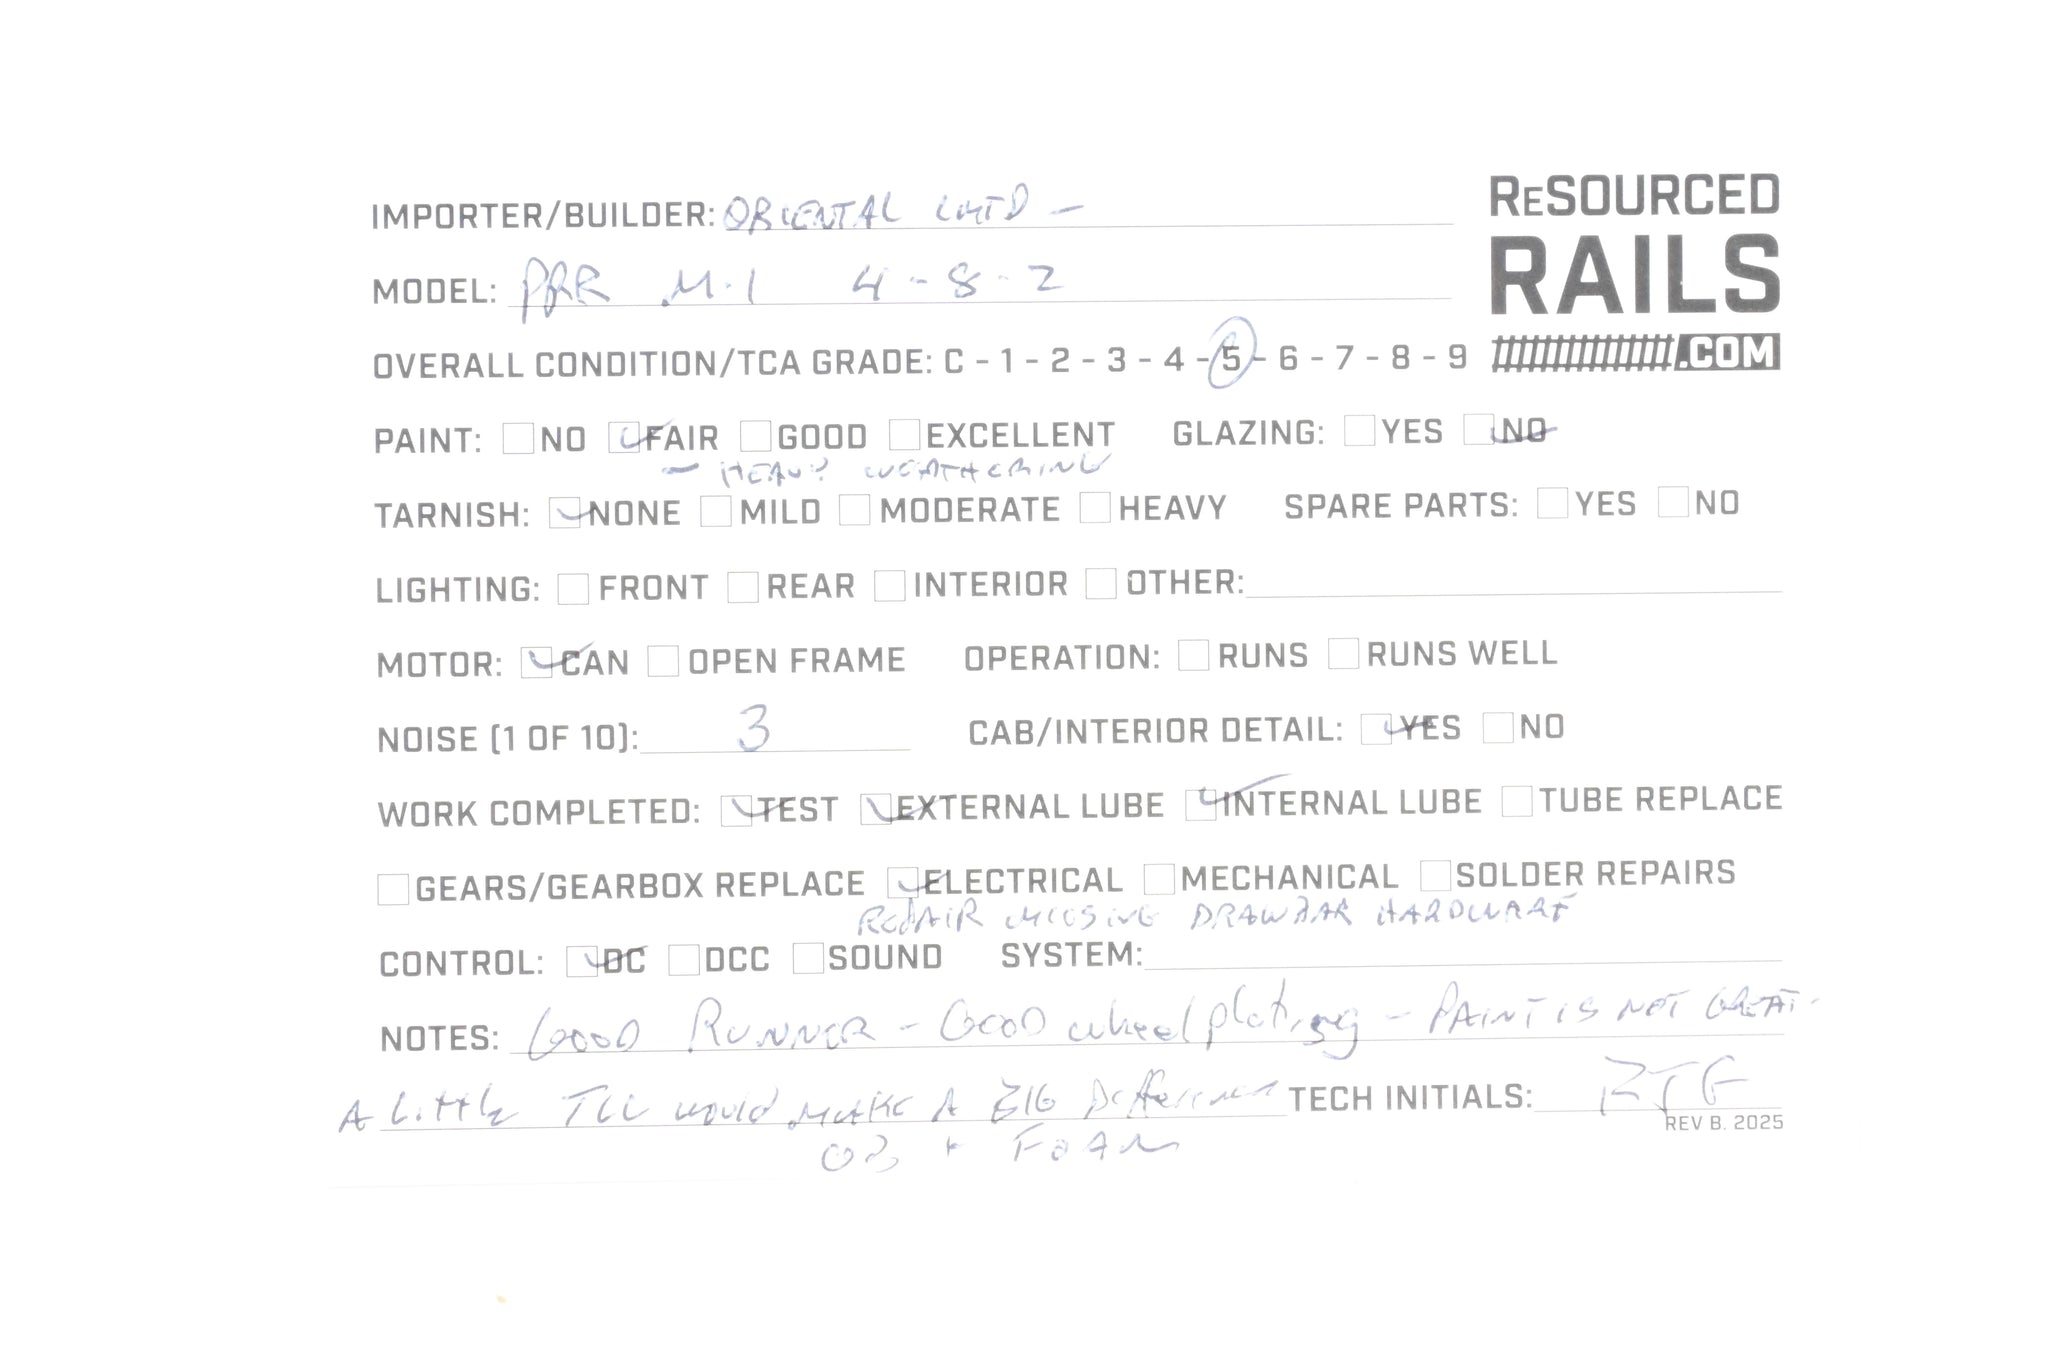 IMPORTER/BUILDER: ORIENTAL LMTD -
RESOURCED
RAILS
.COM
MODEL: PRR M-1 4-8-2
OVERALL CONDITION/TCA GRADE: C - 1 - 2 - 3 - 4 - 5 - 6 - 7 - 8 - 9
PAINT: NO FAIR GOOD EXCELLENT GLAZING: YES NO
- HEAVY WEATHERING
TARNISH: NONE MILD MODERATE HEAVY SPARE PARTS: YES NO
LIGHTING: FRONT REAR INTERIOR OTHER:
MOTOR: CAN OPEN FRAME OPERATION: RUNS RUNS WELL
NOISE (1 OF 10): 3 CAB/INTERIOR DETAIL: YES NO
WORK COMPLETED: TEST EXTERNAL LUBE INTERNAL LUBE TUBE REPLACE
GEARS/GEARBOX REPLACE ELECTRICAL MECHANICAL SOLDER REPAIRS
REPAIR MISSING DRAWBAR HARDWARE
CONTROL: DC DCC SOUND SYSTEM:
NOTES: GOOD RUNNER - GOOD wheel plating - PAINT IS NOT GREAT-
A Little TLC would MAKE A BIG Difference TECH INITIALS: RTG
REV B. 2025
OB + FOAM